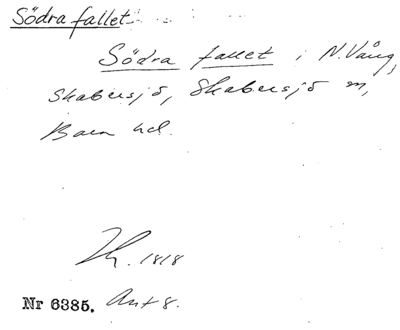 Södra fallet
Södra fallet i N. Vång,
Skabersjö, Skabersjö m,
Bara hd.
1818
Nr 6385. Akt 8.